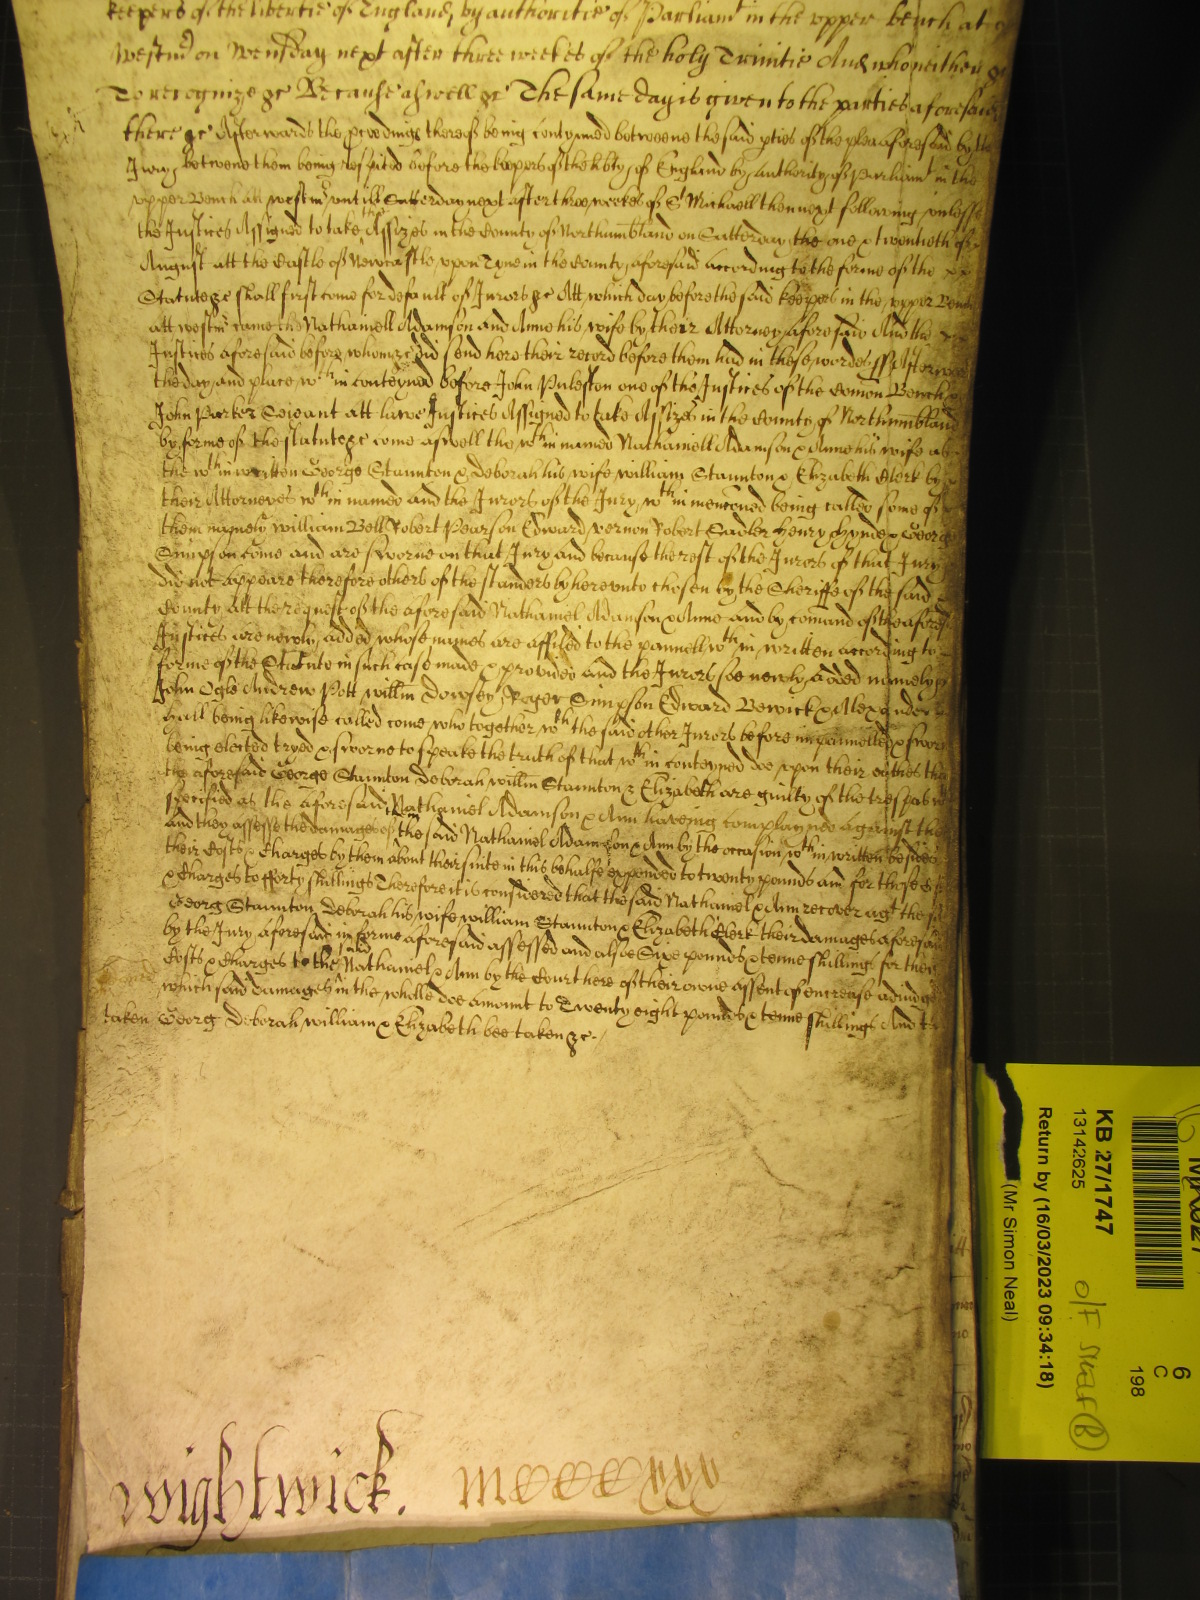 keepers of the libertie of England, by authoritie of Parliamt in the vpper bench at
Westmr on Wensday next after three weekes of the holy Trinitie And who neither &c
To recognize &c Because aswell &c The same day is given to the parties aforesaid
there &c Afterwards the pceedings thereof being contynued betweene the said pties of the plea aforesaid by the
Jury betweene them being respited before the keepers of the libty of England by authority of Parliamt in the
vpper Bench att westmr vntill Satterday next after three weekes of St Michaell then next following vnlesse
the Justices Assigned to take the Assizes in the County of Northumbland on Satterday the one & twentieth of
August att the Castle of Newcastle vpon Tyne in the County aforesaid according to the forme of the
Statute &c shall first come for default of Jurors &c Att which day before the said keepers in the vpper Bench
att westmr came the Nathaniell Adamson and Anne his wife by their Attorney aforesaid And the
Justices aforesaid before whom &c did send here their record before them had in these wordes ss Afterwards
the day and place wthin conteyned before John Puleston one of the Justices of the Comon Bench &
John Parker Seieant att lawe Justices Assigned to take Assizes in the County of Northumbland
by forme of the statute &c come aswell the wthin named Nathaniell Adamson & Anne his wife as
the wthin written George Staunton & Deborah his wife william Staunton & Elizabeth Clerk by
their Attorneyes wthin named and the Jurors of the Jury wthin menconed being called some of
them namely william Bell Robert Pearson Edward vernon Robert Sadler Henry Hynde & George
Simpson come and are sworne on that Jury and because the rest of the Jurors of that Jury
did not appeare therefore others of the standers by herevnto chosen by the Sheriffe of the said
County att the request of the aforesaid Nathaniel Adamson & Anne and by comand of the aforesd
Justices are newly added whose names are affiled to the pannell wthin written according to
forme of the Statute in such case made & provided and the Jurors soe newly added namely
John Ogle Andrew Pott willm Dowsey Roger Simpson Edward Berwick & Alexander
Hall being likewise called come who together wth the said other Jurors before impannelled & sworne
being elected tryed & sworne to speake the truth of that wthin conteyned doe vpon their oathes that
the aforesaid George Staunton Deborah willm Staunton & Elizabeth are guilty of the trespas wthin
specified as the aforesaid Nathaniel Adamson & Ann haveing complayned against them
and they assesse the damages of the said Nathaniel Adamson & Ann by the occasion wthin written besides
their Costs & Charges by them about their suite in this behalfe expended to twenty pounds and for those Costs
& Charges to fforty shillings Therefore it is considered that the said Nathaniel & Ann recover agt the sd
Georg Staunton Deborah his wife william Staunton & Elizabeth Clerk their damages aforesaid
by the Jury aforesaid in forme aforesaid assessed and alsoe Sixe pounds & tenne shillings for their
Costs & Charges to the said Nathaniel & Ann by the Court here of their owne assent of encrease adiudged
which said damages in the wholle doe amount to Twenty eight pounds & tenne shillings And the
taken Georg Deborah william & Elizabeth bee taken &c
Wightwick.
KB 27/1747
13142625
Return by (16/03/2023 09:34:18)
(Mr Simon Neal)
6
C
198